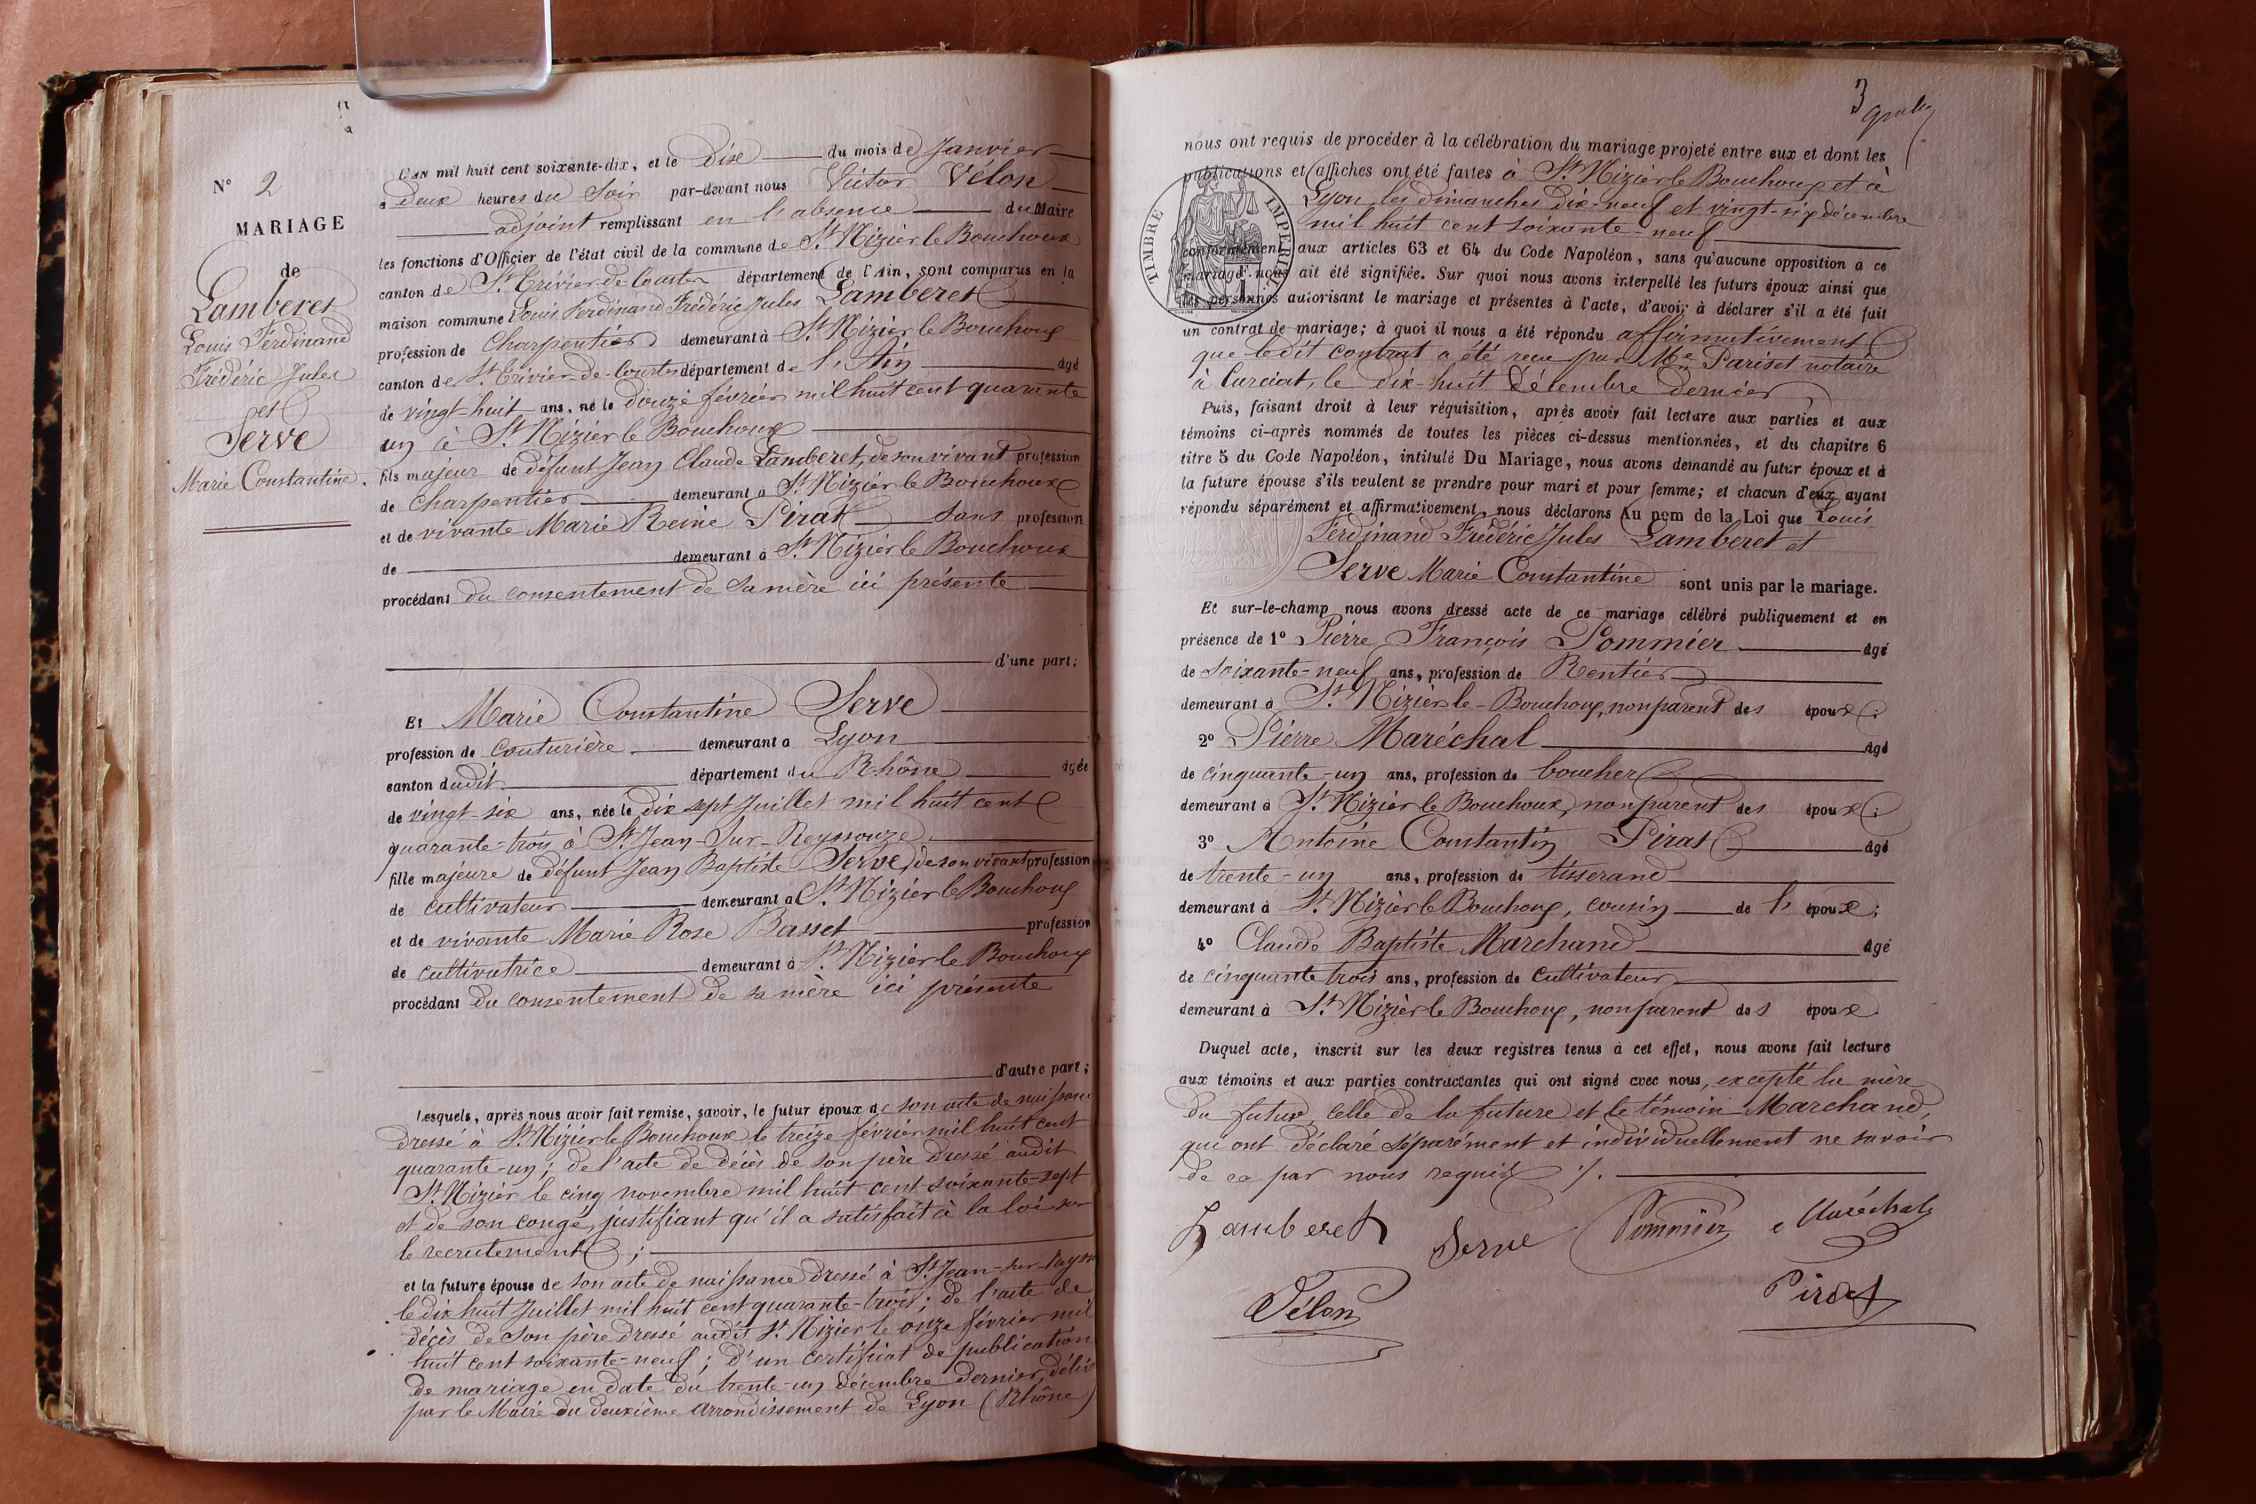 N° 2
MARIAGE
de
Lamberet
Louis Ferdinand
Frédéric Jules
et
Serve
Marie Constantine.
L'an mil huit cent soixante-dix, et le dix du mois de Janvier
à deux heures du soir par-devant nous Victor Vélon
adjoint remplissant en l'absence du Maire
les fonctions d'Officier de l'état civil de la commune de St Nizier le Bouchoux
canton de St Trivier de Courtes département de l'Ain, sont comparus en la
maison commune Louis Ferdinand Frédéric Jules Lamberet
profession de Charpentier demeurant à St Nizier le Bouchoux
canton de St Trivier-de-Courtes département de l'Ain âgé
de vingt-huit ans, né le douze février mil huit cent quarante
un à St Nizier le Bouchoux
fils majeur de défunt Jean Claude Lamberet, de son vivant profession
de Charpentier demeurant à St Nizier le Bouchoux
et de vivante Marie Reine Pirat sans profession
de demeurant à St Nizier le Bouchoux
procédant du consentement de sa mère ici présente
d'une part;
Et Marie Constantine Serve
profession de couturière demeurant à Lyon
canton dudit département du Rhône âgée
de vingt-six ans, née le dix sept Juillet mil huit cent
quarante-trois à St Jean-Sur-Reyssouze
fille majeure de défunt Jean Baptiste Serve, de son vivant profession
de cultivateur demeurant à St Nizier le Bouchoux
et de vivante Marie Rose Basset profession
de cultivatrice demeurant à St Nizier le Bouchoux
procédant du consentement de sa mère ici présente
d'autre part;
Lesquels, après nous avoir fait remise, savoir, le futur époux de son acte de naissance
dressé à St Nizier le Bouchoux le treize février mil huit cent
quarante-un; de l'acte de décès de son père dressé audit
St Nizier le cinq novembre mil huit cent soixante-sept
et de son congé, justifiant qu'il a satisfait à la loi sur
le recrutement;
et la future épouse de son acte de naissance dressé à St Jean-sur-Reyss
le dix huit Juillet mil huit cent quarante-trois; de l'acte de
décès de son père dressé audit St Nizier le onze février mil
huit cent soixante-neuf; d'un certificat de publication
de mariage en date du trente-un décembre dernier, déliv
par le Maire du deuxième arrondissement de Lyon (Rhône)
3
nous ont requis de procéder à la célébration du mariage projeté entre eux et dont les
publications et affiches ont été faites à St Nizier le Bouchoux et à
Lyon, les dimanches dix-neuf et vingt-six décembre
mil huit cent soixante-neuf
TIMBRE IMPERIAL
conformément aux articles 63 et 64 du Code Napoléon, sans qu'aucune opposition à ce
mariage nous ait été signifiée. Sur quoi nous avons interpellé les futurs époux ainsi que
les personnes autorisant le mariage et présentes à l'acte, d'avoir à déclarer s'il a été fait
un contrat de mariage; à quoi il nous a été répondu affirmativement
que ledit contrat a été reçu par Me Pariset notaire
à Curciat, le dix-huit décembre dernier
Puis, faisant droit à leur réquisition, après avoir fait lecture aux parties et aux
témoins ci-après nommés de toutes les pièces ci-dessus mentionnées, et du chapitre 6
titre 5 du Code Napoléon, intitulé Du Mariage, nous avons demandé au futur époux et à
la future épouse s'ils veulent se prendre pour mari et pour femme; et chacun d'eux ayant
répondu séparément et affirmativement, nous déclarons Au nom de la Loi que Louis
Ferdinand Frédéric Jules Lamberet et
Serve Marie Constantine sont unis par le mariage.
Et sur-le-champ nous avons dressé acte de ce mariage célébré publiquement et en
présence de 1° Pierre François Pommier âgé
de soixante-neuf ans, profession de Rentier
demeurant à St Nizier le-Bouchoux, non parent des époux;
2° Pierre Maréchal âgé
de cinquante-un ans, profession de boucher
demeurant à St Nizier le Bouchoux, non parent des époux;
3° Antoine Constantin Pirat âgé
de trente-un ans, profession de tisserand
demeurant à St Nizier le Bouchoux, cousin de l'époux;
4° Claude Baptiste Marchand âgé
de cinquante trois ans, profession de cultivateur
demeurant à St Nizier le Bouchoux, non parent des époux
Duquel acte, inscrit sur les deux registres tenus à cet effet, nous avons fait lecture
aux témoins et aux parties contractantes qui ont signé avec nous, excepté la mère
du futur, celle de la future et le témoin Marchand,
qui ont déclaré séparément et individuellement ne savoir
de ce par nous requis ./.
Lamberet Serve Pommier Maréchal
Vélon Pirat